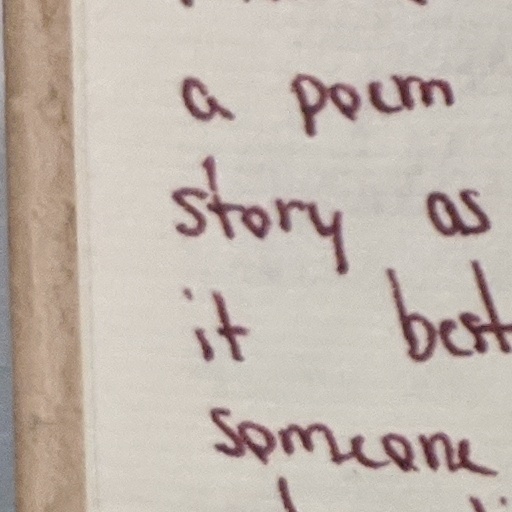 a poem
story as
it best
someone